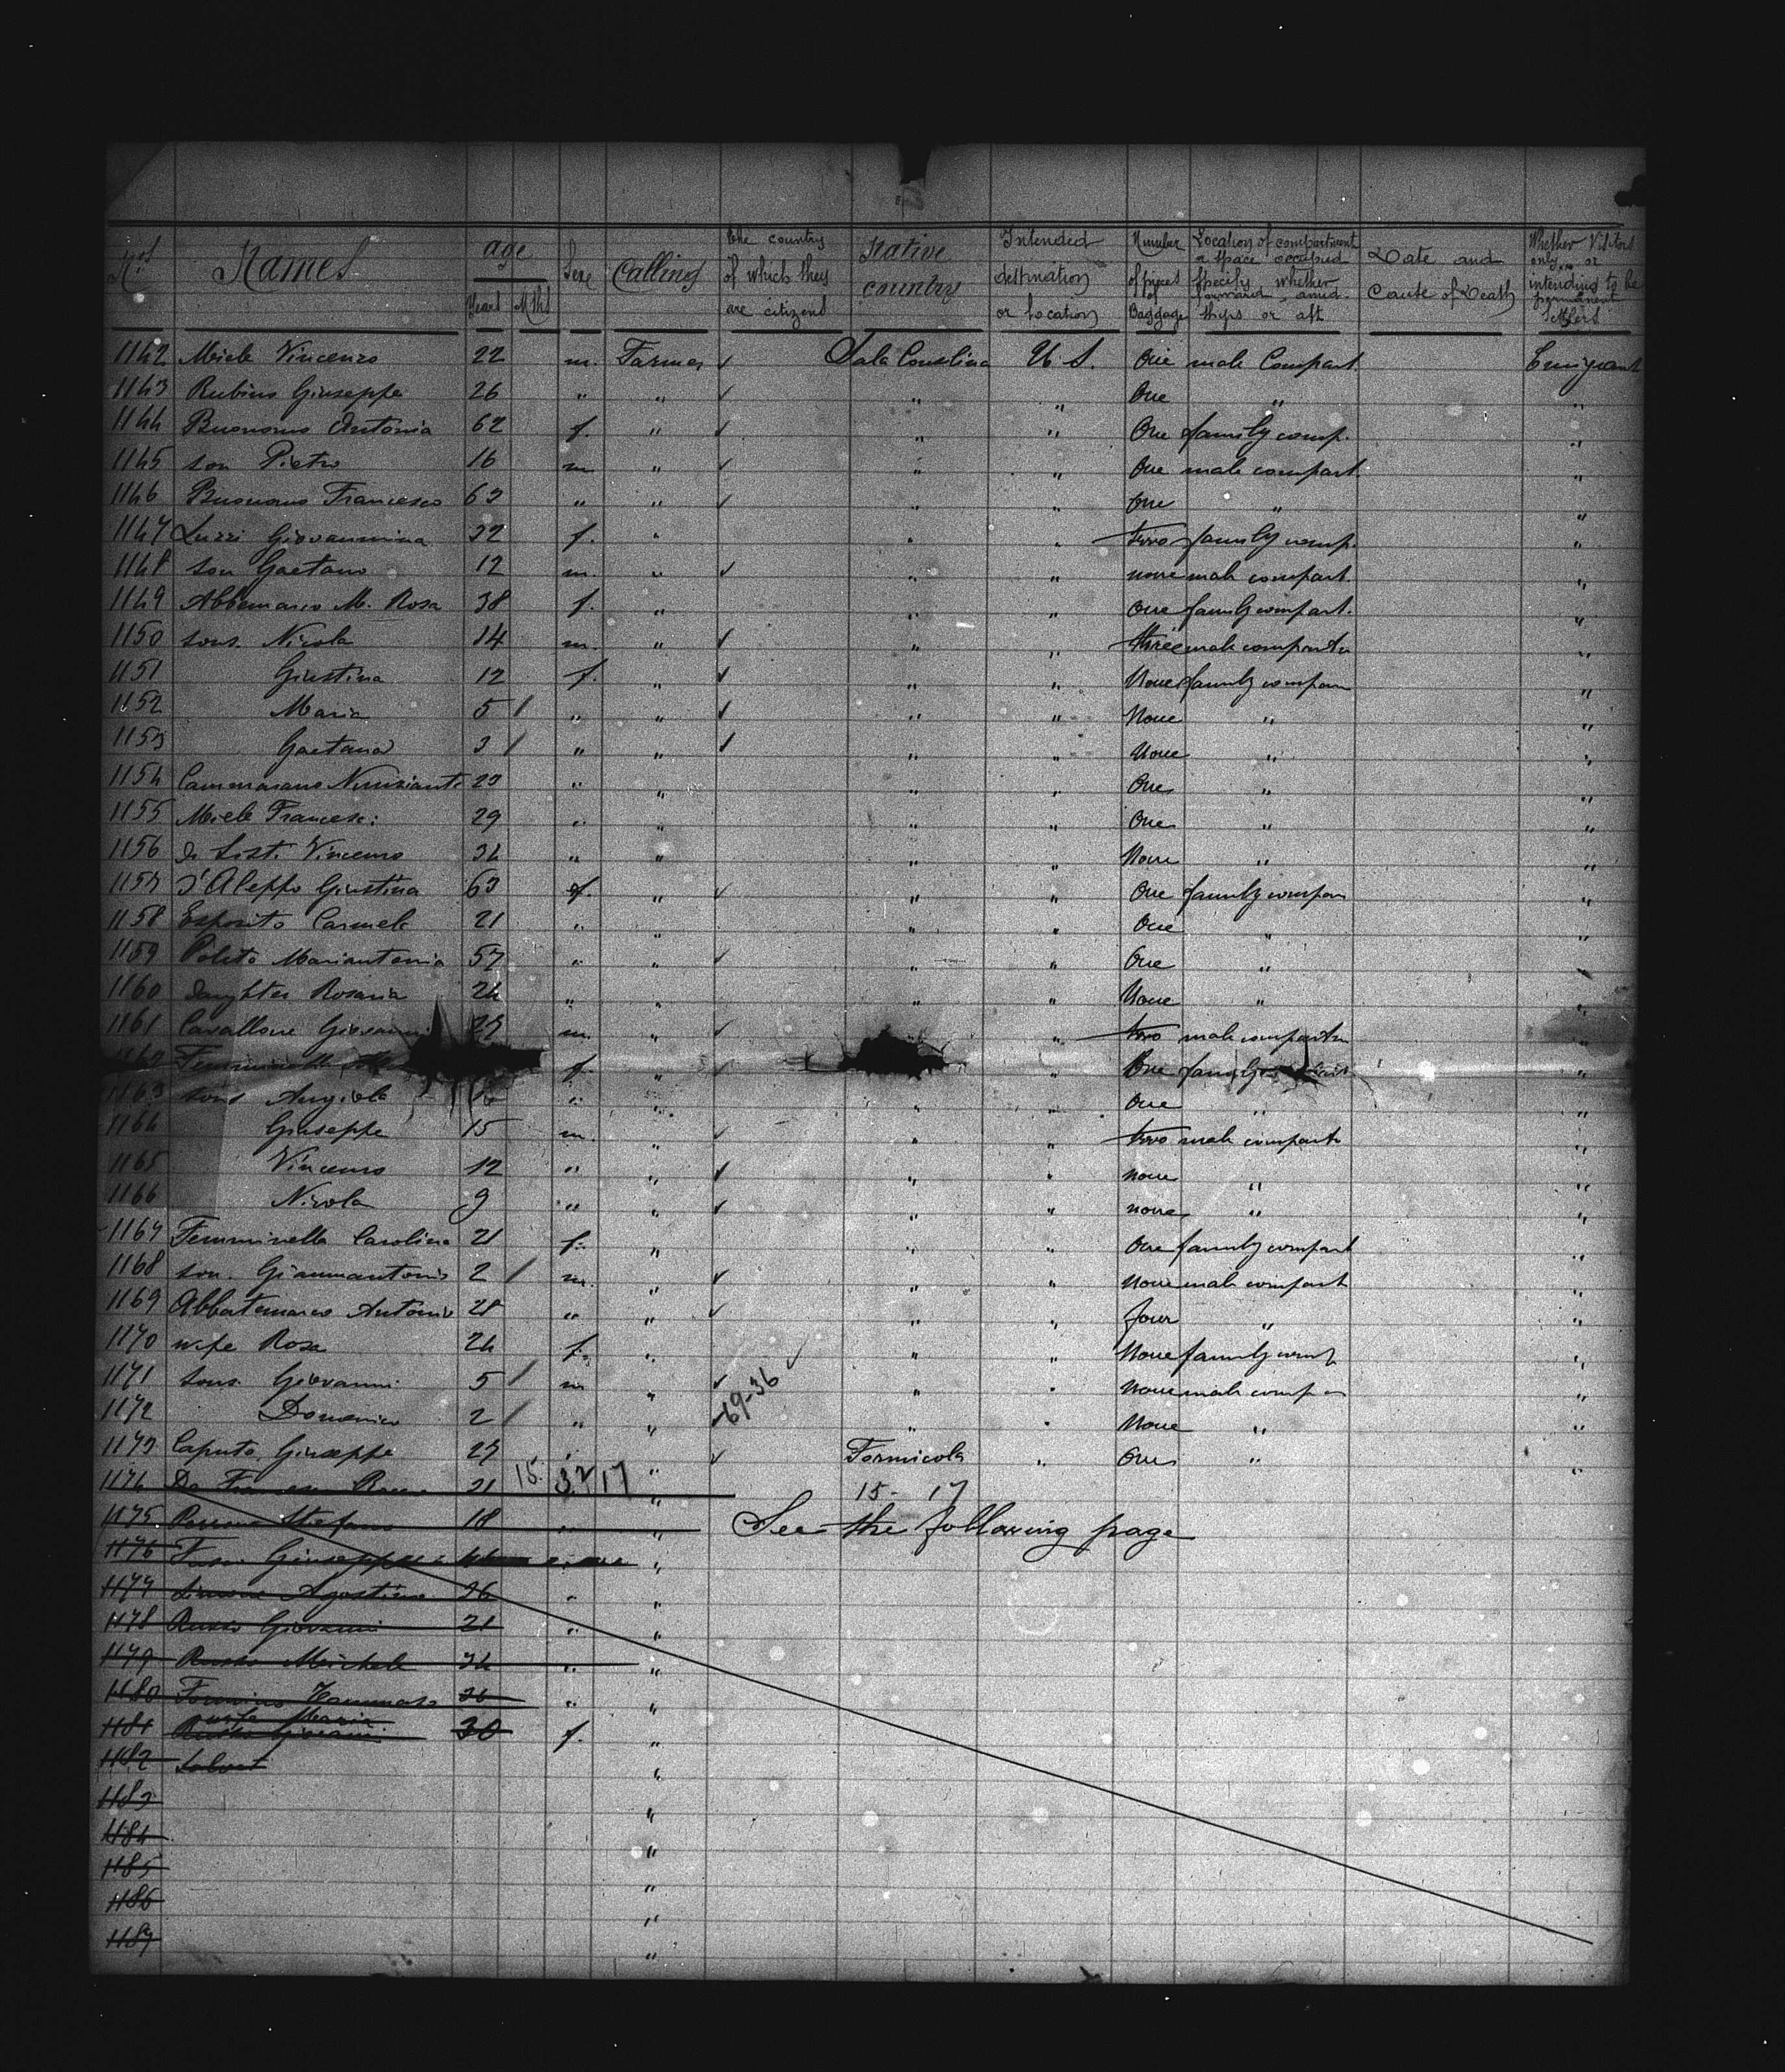 Nos Names age Years Mths Sexe Calling the country of which they are citizens Native country Intended destination or location Number of pieces of Baggage Location of compartment a space occupied specify whether forward, amid-ships or aft Date and Cause of Death Whether Visitors only or intending to be permanent Settlers
1142 Miele Vincenzo 22 m. Farmer ✓ Sala Consilina U. S. One male Compart. Emigrant
1143 Rubino Giuseppe 26 " " ✓ " " One " "
1144 Buonomo Antonia 62 f. " ✓ " " One family comp. "
1145 son Pietro 16 m " ✓ " " One male compart. "
1146 Buonomo Francesco 63 " " ✓ " " One " "
1147 Luzzi Giovannina 32 f. " " " two family comp. "
1148 son Gaetano 12 m. " ✓ " " none male compart. "
1149 Abbamarco M. Rosa 38 f. " " " One family compart. "
1150 sons. Nicola 14 m. " ✓ " " three male "
1151 Giustina 12 f. " ✓ " " None family "
1152 Maria 5 / " " ✓ " " None " "
1153 Gaetana 3 / " " ✓ " " None " "
1154 Cammarano 23 " " " " One " "
1155 Miele 29 " " " " One " "
1156 Vincenzo 34 " " " " None " "
1157 d'Aleppo Giustina 63 f. " ✓ " " One family "
1158 Esposito Carmela 21 " " " " One " "
1159 Polito Mariantonia 57 " " ✓ " " One " "
1160 daughter Rosaria 24 " " " " None " "
1161 Cavallone m. " ✓ " two male "
f. " ✓ " One family "
1163 sons Angiola " " " " One " "
1164 Giuseppe 15 m. " ✓ " " two male "
1165 Vincenzo 12 " " ✓ " " none " "
1166 Nicola 9 " " ✓ " " none " "
1167 Femminella Carolina 21 f. " " " One family compart "
1168 son. Giannantonio 2 / m. " ✓ " " none male compart "
1169 Abbatemarco Antonio 28 " " ✓ " " four " "
1170 wife Rosa 24 f. " " " None family "
1171 sons. Giovanni 5 / m " ✓ " " none male "
1172 Domenico 2 / " " ✓ 69-36 ✓ " " None " "
1173 Caputo Giuseppe 27 " " ✓ Formicola " One " "
1174 21 15. 32 17 " 15 - 17
1175 Stefano 18 " " See the following page
1176 Giuseppe "
1177 Simone Agostino 26 " "
1178 Russo Giovanni 21 " "
1179 Russo Michele 34 " "
1180 Tommaso 26 " "
wife Maria
1181 Russo Giovanni 30 f. "
1182 "
1183 "
1184 "
1185 "
1186 "
1187 "